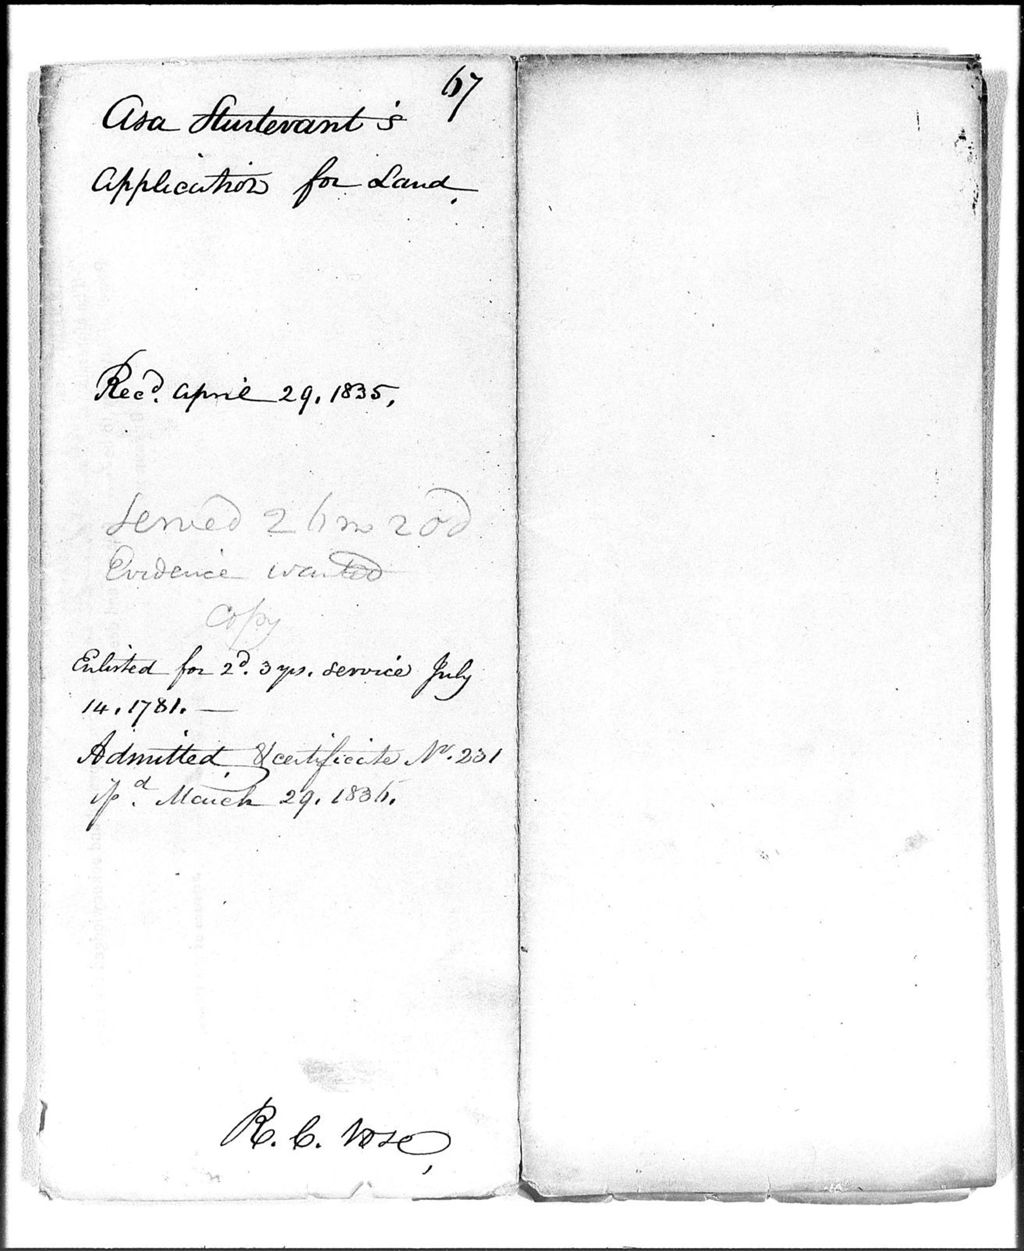 67
Asa Sturtevant's
Application for Land.
Rec'd. April 29. 1835,
Served 2 6m 20d
Evidence wanted
Copy
Enlisted for 2d. 3 yrs. service July
14. 1781. —
Admitted, & certificate No. 231
March 29. 1836.
R. C. Vose,